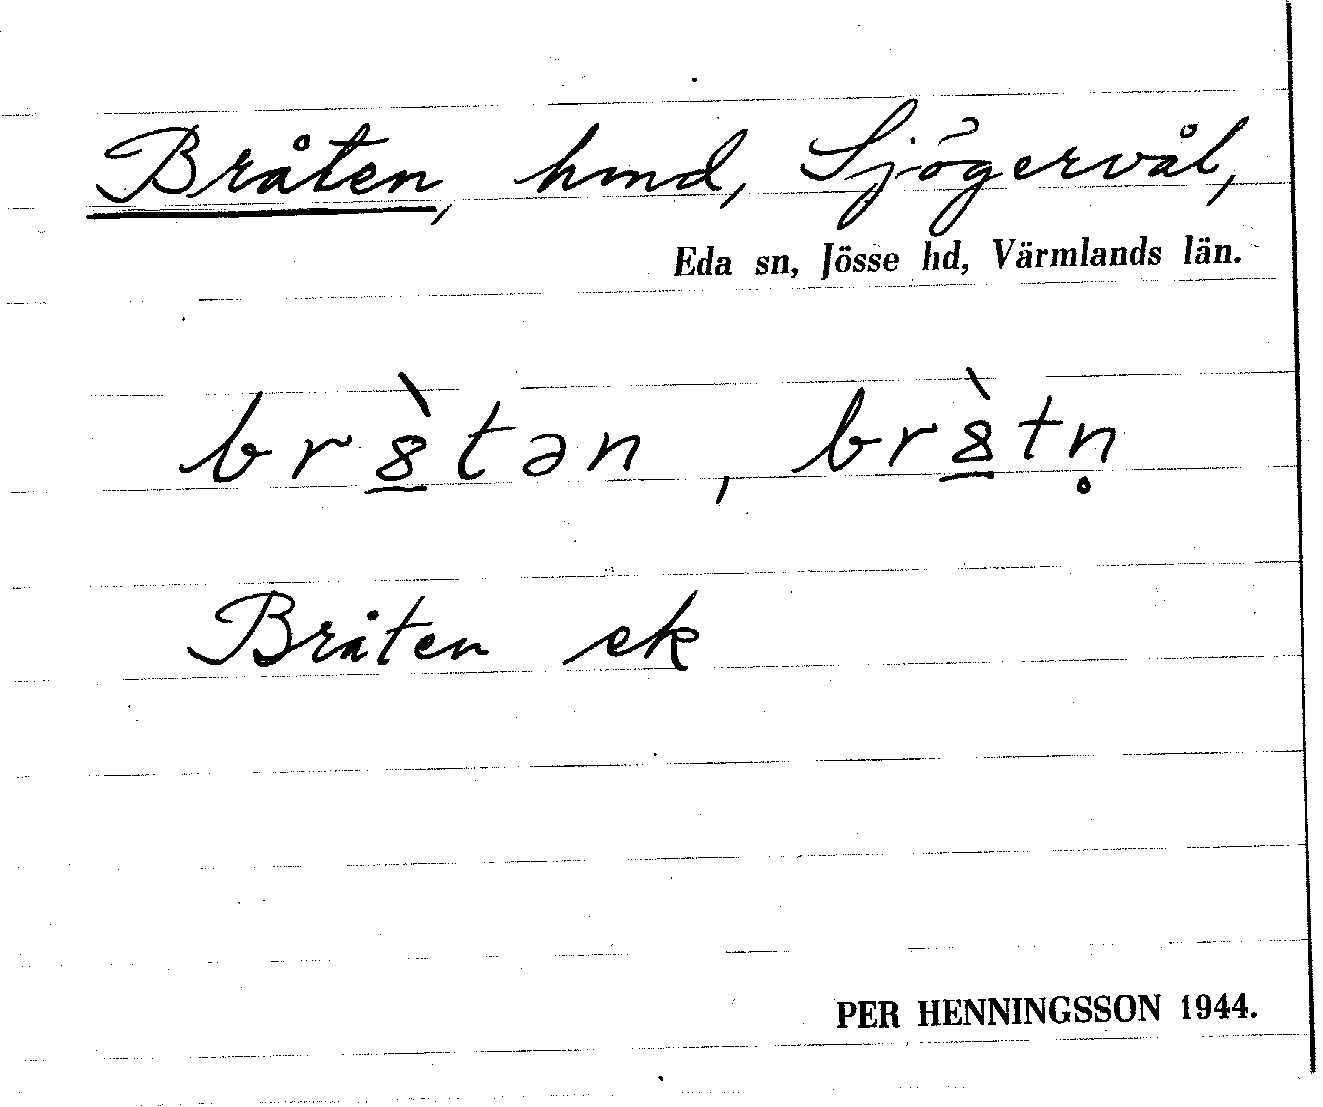 Bråten, hmd, Sjögervål,
Eda sn, Jösse hd, Värmlands län.
br8̱̀tən, br8̱̀tn̥
Bråten ek
PER HENNINGSSON 1944.